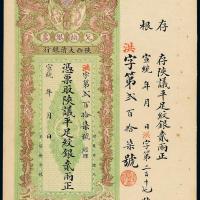 存根
存陝議平足紋銀貳兩正
宣統 年 月 日 洪字第二百十七號
洪字第貳百拾柒號
陝西大清銀行
洪字第貳百拾柒號
憑票取陝議平足紋銀貳兩正
宣統 年 月 日